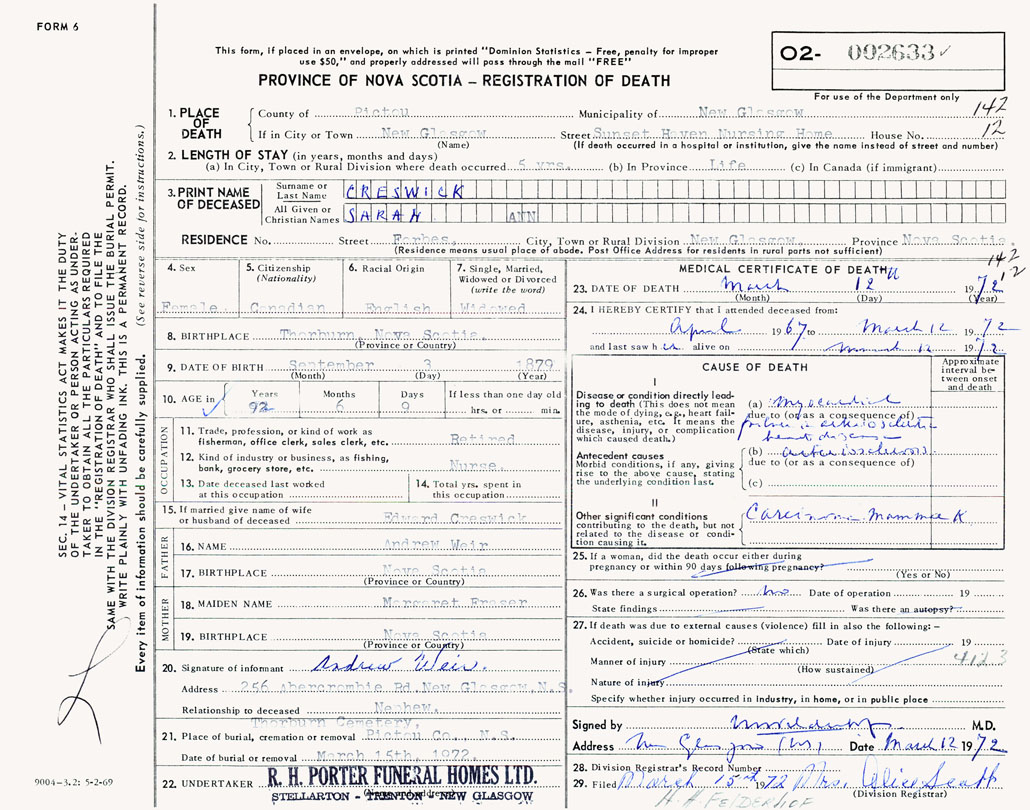 FORM 6
This form, if placed in an envelope, on which is printed "Dominion Statistics – Free, penalty for improper
use $50," and properly addressed will pass through the mail "FREE"
PROVINCE OF NOVA SCOTIA – REGISTRATION OF DEATH
O2- 002633 ✓
For use of the Department only
142
12
1. PLACE OF DEATH
County of Pictou Municipality of New Glasgow
If in City or Town New Glasgow Street Sunset Haven Nursing Home House No.
(Name) (If death occurred in a hospital or institution, give the name instead of street and number)
2. LENGTH OF STAY (in years, months and days)
(a) In City, Town or Rural Division where death occurred 5 yrs. (b) In Province Life (c) In Canada (if immigrant)
3. PRINT NAME OF DECEASED
Surname or Last Name CRESWICK
All Given or Christian Names SARAH ANN
RESIDENCE No. Street Forbes, City, Town or Rural Division New Glasgow, Province Nova Scotia.
(Residence means usual place of abode. Post Office Address for residents in rural parts not sufficient)
4. Sex Female
5. Citizenship (Nationality) Canadian
6. Racial Origin English
7. Single, Married, Widowed or Divorced (write the word) Widowed
8. BIRTHPLACE Thorburn, Nova Scotia.
(Province or Country)
9. DATE OF BIRTH September 3 1879
(Month) (Day) (Year)
10. AGE in Years 92 Months 6 Days 9 If less than one day old hrs. or min.
OCCUPATION
11. Trade, profession, or kind of work as
fisherman, office clerk, sales clerk, etc. Retired
12. Kind of industry or business, as fishing,
bank, grocery store, etc. Nurse.
13. Date deceased last worked
at this occupation
14. Total yrs. spent in
this occupation
15. If married give name of wife
or husband of deceased Edward Creswick
FATHER
16. NAME Andrew Weir
17. BIRTHPLACE Nova Scotia
(Province or Country)
MOTHER
18. MAIDEN NAME Margaret Fraser
19. BIRTHPLACE Nova Scotia
(Province or Country)
20. Signature of informant Andrew Weir.
Address 256 Abercrombie Rd. New Glasgow, N.S.
Relationship to deceased Nephew.
Thorburn Cemetery,
21. Place of burial, cremation or removal Pictou Co., N.S.
Date of burial or removal March 15th, 1972
22. UNDERTAKER R. H. PORTER FUNERAL HOMES LTD.
STELLARTON - TRENTON - NEW GLASGOW
MEDICAL CERTIFICATE OF DEATH
142
12
23. DATE OF DEATH March 12 1972
(Month) (Day) (Year)
24. I HEREBY CERTIFY that I attended deceased from:
April 1967 to March 12 1972
and last saw her alive on March 12 1972
CAUSE OF DEATH
Approximate interval between onset and death
I
Disease or condition directly leading to death (This does not mean
the mode of dying, e.g., heart failure, asthenia, etc. It means the
disease, injury, or complication
which caused death.)
(a) Myocardial
due to (or as a consequence of)
failure arteriosclerotic
heart disease
Antecedent causes
Morbid conditions, if any, giving
rise to the above cause, stating
the underlying condition last.
(b) arteriosclerosis
due to (or as a consequence of)
(c)
II
Other significant conditions
contributing to the death, but not
related to the disease or condition causing it.
Carcinoma Mammae R.
25. If a woman, did the death occur either during
pregnancy or within 90 days following pregnancy?
(Yes or No)
26. Was there a surgical operation? no Date of operation 19
State findings Was there an autopsy?
27. If death was due to external causes (violence) fill in also the following: –
Accident, suicide or homicide? Date of injury 19
(State which)
4123
Manner of injury
(How sustained)
Nature of injury
Specify whether injury occurred in Industry, in home, or in public place
Signed by M.D.
Address New Glasgow (NS) Date March 12 1972
28. Division Registrar's Record Number
29. Filed March 15th 1972 Mrs. Alice Scott
(Division Registrar)
SEC. 14 – VITAL STATISTICS ACT MAKES IT THE DUTY
OF THE UNDERTAKER OR PERSON ACTING AS UNDERTAKER TO OBTAIN ALL THE PARTICULARS REQUIRED
IN THE "REGISTRATION OF DEATH" AND TO FILE THE
SAME WITH THE DIVISION REGISTRAR WHO SHALL ISSUE THE BURIAL PERMIT.
WRITE PLAINLY WITH UNFADING INK. THIS IS A PERMANENT RECORD.
Every item of information should be carefully supplied. (See reverse side for instructions.)
9004-3.2: 5-2-69